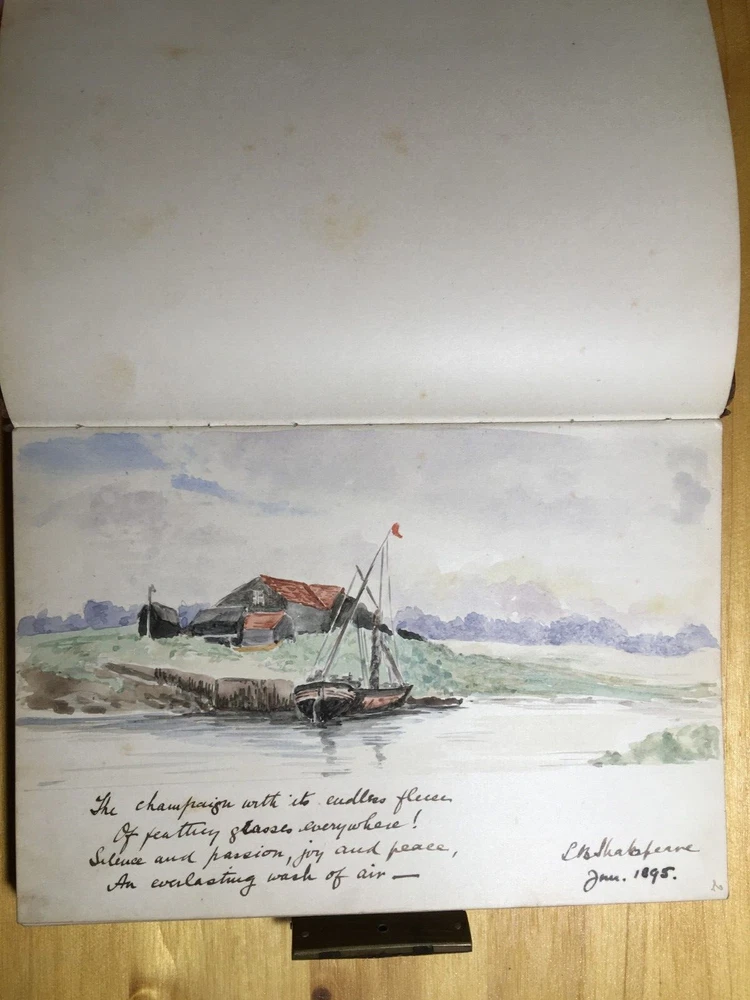 The champaign with its endless fleece
Of feathery glasses everywhere!
Silence and passion, joy and peace,
An everlasting wash of air —
L B Shakspeare
Jan. 1895.